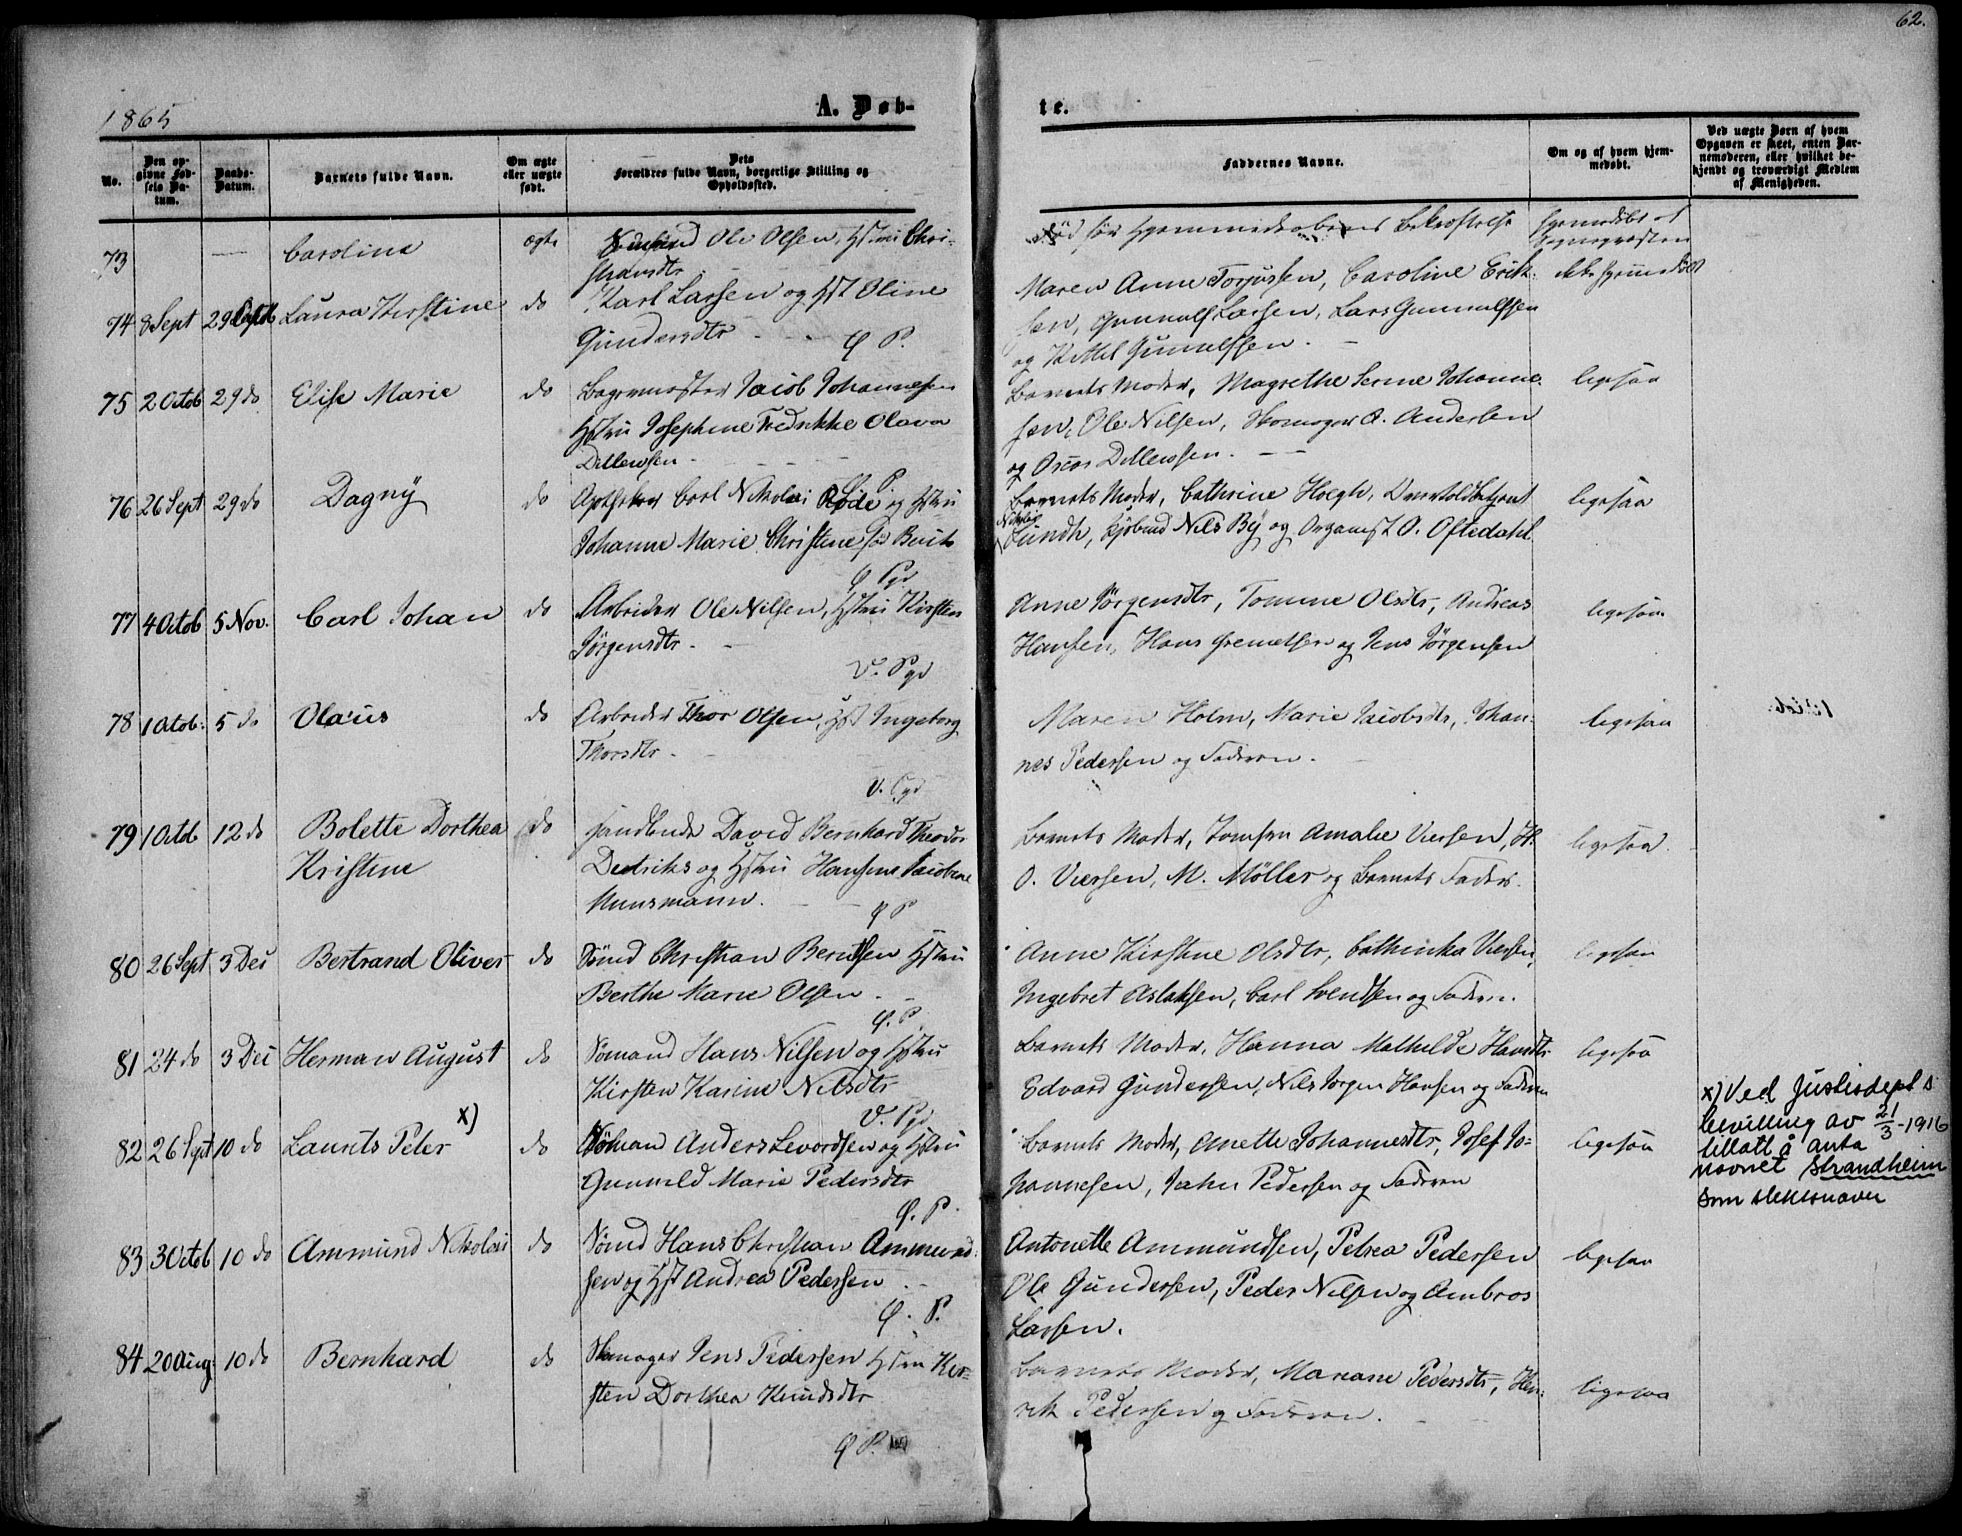 62.
1865
A. Døb-
te.
No.
Den opgivne Fødsels Datum.
Daabs-Datum.
Barnets fulde Navn.
Om ægte eller uægte født.
Dets Forældres fulde Navn, borgerlige Stilling og Opholdssted.
Faddernes Navne.
Om og af hvem hjemmedøbt.
Ved uægte Børn af hvem Opgaven er skeet, enten Barnemoderen, eller hvilket bekjendt og troværdigt Medlem af Menigheden.
73 — Carolina ægte Ole Olsen, Hstru Chri-
stiansdtr
død før Hjemmedaabens Bekræftelse
hjemmedøbt af
Sognepræsten
74 8 Sept 29 Octob Laura Kirstine do Karl Larsen og Hst Oline
Gundersdtr
Ø P.
Maren Anne Torjussen, Caroline Erik-
sen, Gunnulf Larsen, Lars Gunnulfsen
og Kittel Gunulfsen.
ikke hjemmedøbt
75 2 Octob 29 do Elise Marie do Bagermester Jacob Johannesen
Hstru Josephine Fredrikke Olava
Ditlewsen
Ø P
Barnets Moder, Magrethe Serine Johanne-
sen, Ole Nilsen, Skomager A. Andersen
og Oscar Ditlewsen.
ligesaa
76 26 Sept 29 do Dagny do Apotheker Carl Nikolai Røde og Hstru
Johanne Marie Christine
Ø Pgd
Barnets Moder, Cathrine Hoegh, Overtoldbetjent
Nikolai
Sundh, Kjøbmd Nils By og Organist O. Oftedahl.
ligesaa
77 4 Octob 5 Nov. Carl Johan do Arbeider Ole Nilsen, Hstru Kirsten
Jørgensdtr.
V. Pgd
Anne Jørgensdtr, Tomine Olsdtr, Andreas
Hansen, Hans og Jens Jørgensen
ligesaa
78 1 Octob. 5 do Olaus do Arbeider Thor Olsen, Hst Ingeborg
Thorsdtr.
V. Pgd
Maren Holm, Marie Jacobsdtr, Johan-
nes Pedersen og Faderen.
ligesaa
79 1 Octob 12 do Bolette Dorthea
Kristine
do Handlende David Bernhard Theodor
Dedriks og Hstru Hansine Jacobine
Munsmann.
Ø P
Barnets Moder, Jomfru Amalie Viersen, H.
O. Viersen, M. Møller og Barnets Fader.
ligesaa.
80 26 Sept 3 Dec Bertrand Oliver do Sømd Christian Berntsen Hstru
Berthe Marie Olsen.
Ø. P.
Anne Kirstine Olsdtr, Cathinka Viersen,
Ingebret Aslaksen, Carl Svendsen og Faderen.
ligesaa
81 24 do 3 Dec Herman August do Sømand Hans Nilsen og Hstru
Kirsten Karine Nilsdtr
V. Pgd
Barnets Moder, Hanna Mathilde Hansdtr
Edvard Gundersen, Nils Jørgen Hansen og Faderen
ligesaa
82 26 Sept 10 do Laurits Peter x) do Sømand Anders Levordsen og Hstru
Gunnild Marie Pedersdtr
Ø. P.
Barnets Moder, Anette Johannesdtr, Josef Jo-
hannesen, Jahn Pedersen og Faderen
ligesaa
x) Ved Justisdept's
bevilling av 21/3-1916
tillatt å anta
navnet Strandheim
som slektsnavn
83 3 Octob 10 do Ammund Nikolai do Sømd Hans Christian Ammund-
sen og Hst Andrea Pedersen
Ø. P.
Antonette Ammundsen, Petrea Pedersen
Ole Gundersen, Peder Nilsen og Ambros
Larsen.
ligesaa
84 20 Aug. 10 do Bernhard do Skomager Jens Pedersen Hstru Kir-
sten Dorthea Knudsdtr
Ø P.
Barnets Moder, Mariane Pedersdtr, Hen-
rik Pedersen og Faderen.
ligesaa